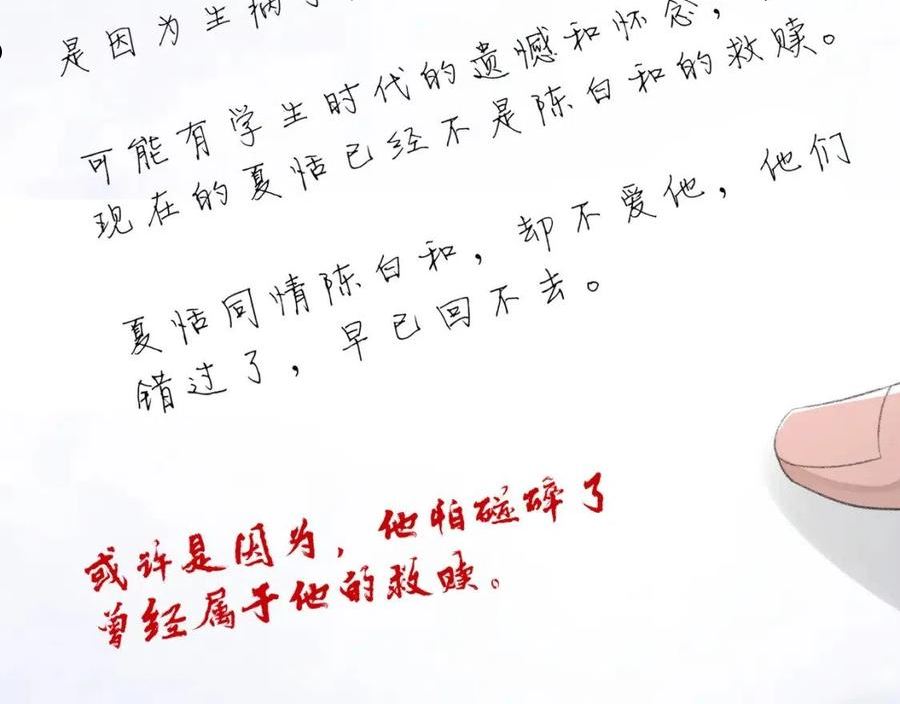 是因为生病
可能有学生时代的遗憾和怀念，
现在的夏恬已经不是陈白和的救赎。
夏恬同情陈白和，却不爱他，他们
错过了，早已回不去。
或许是因为，他怕碰碎了
曾经属于他的救赎。